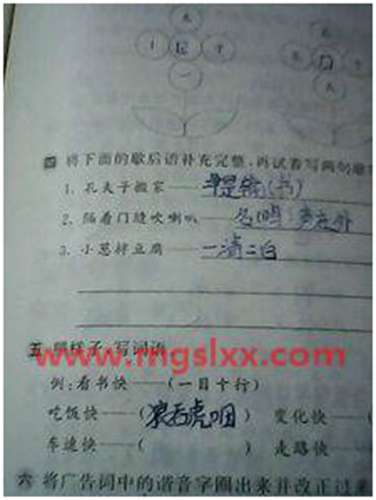 四 将下面的歇后语补充完整,再试着写两句歇
1. 孔夫子搬家——尽是输(书)
2. 隔着门缝吹喇叭——名鸣 声在外
3. 小葱拌豆腐——一清二白
五 照样子,写词语
www.mgslxx.com
例:看书快——(一目十行)
吃饭快——(狼吞虎咽) 变化快——
车速快——( ) 走路快——
六 将广告词中的谐音字圈出来并改正过来